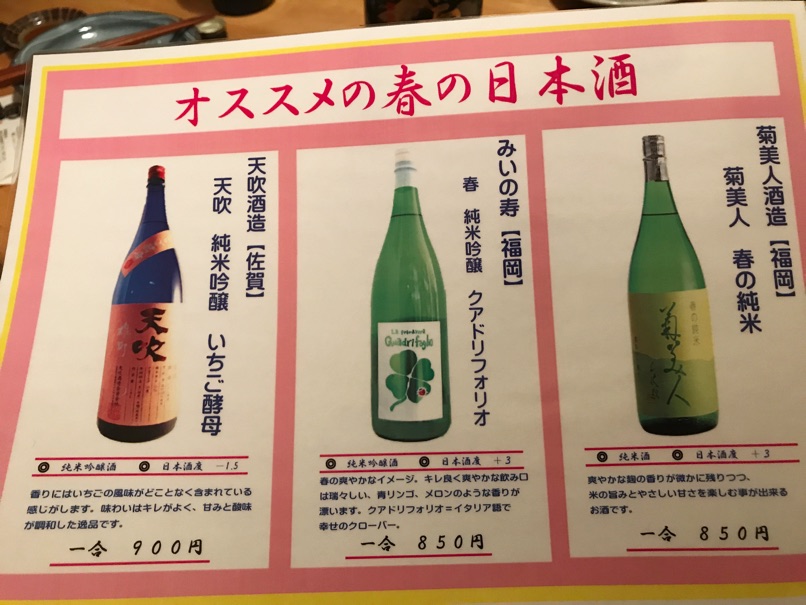 オススメの春の日本酒
天吹酒造【佐賀】
天吹 純米吟醸 いちご酵母
天吹
純米吟醸酒 日本酒度 -1.5
香りにはいちごの風味がどことなく含まれている
感じがします。味わいはキレがよく、甘みと酸味
が調和した逸品です。
一合 900円
みいの寿【福岡】
春 純米吟醸 クアドリフォリオ
Quadrifoglio
純米吟醸酒 日本酒度 +3
春の爽やかなイメージ。キレ良く爽やかな飲み口
は瑞々しい、青リンゴ、メロンのような香りが
漂います。クアドリフォリオ=イタリア語で
幸せのクローバー。
一合 850円
菊美人酒造【福岡】
菊美人 春の純米
春の純米
菊美人
純米酒 日本酒度 +3
爽やかな麹の香りが微かに残りつつ、
米の旨みとやさしい甘さを楽しむ事が出来る
お酒です。
一合 850円